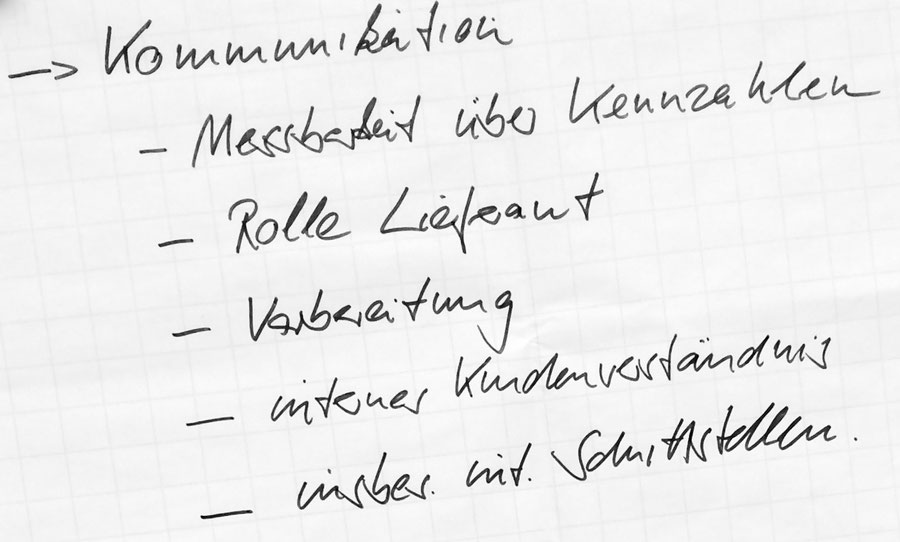 → Kommunikation
– Messbarkeit über Kennzahlen
– Rolle Lieferant
– Vorbereitung
– interner Kundenverständnis
– insber. int. Schnittstellen.